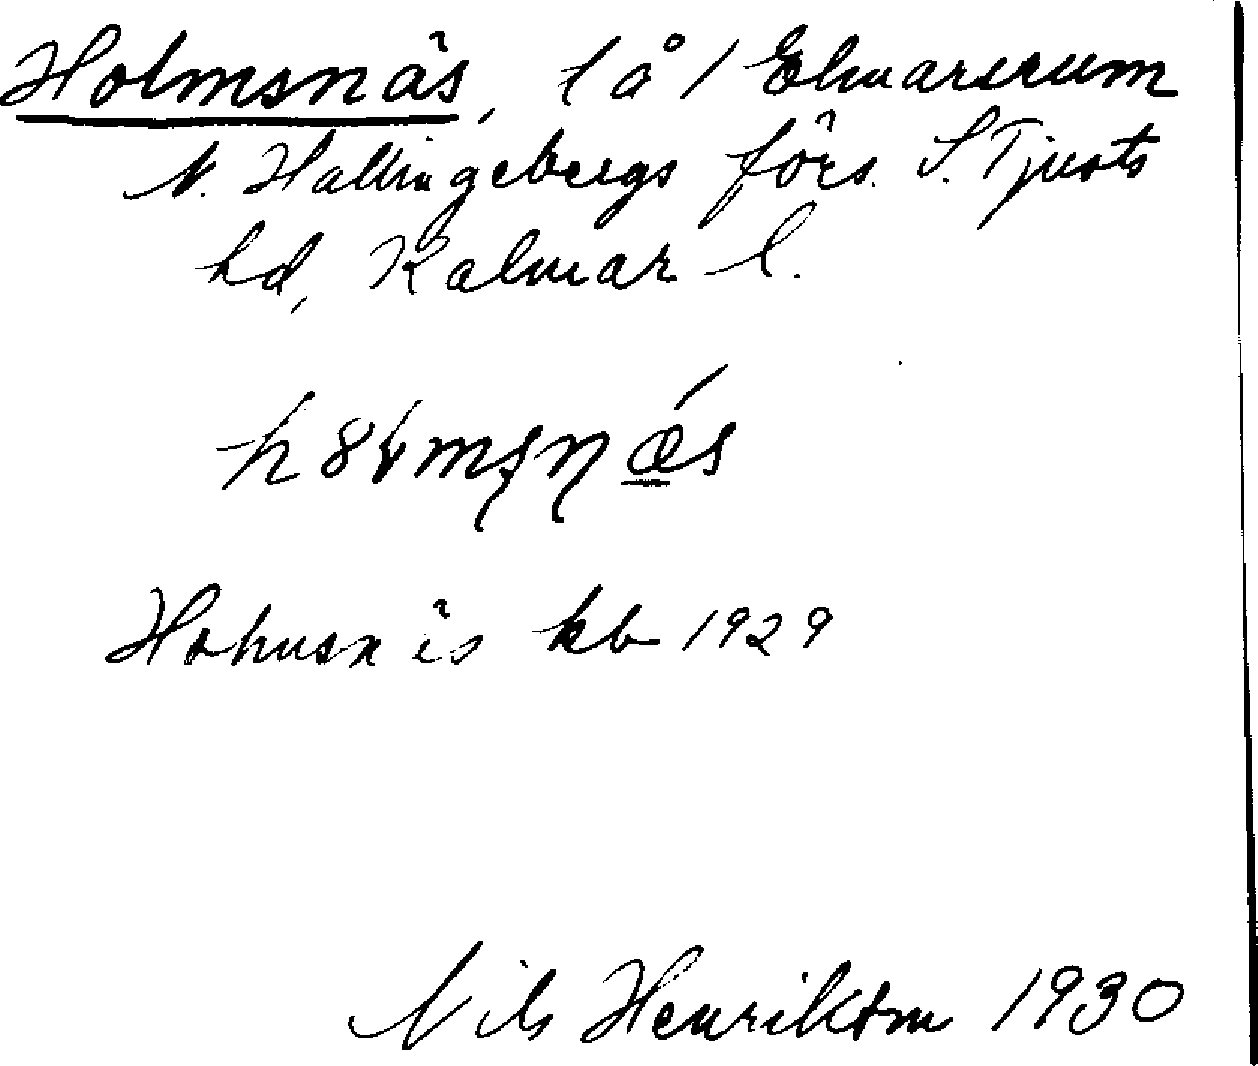 Holmsnäs, l å / Elmarsrum
N. Hallingebergs förs. S. Tjusts
hd, Kalmar l.
Holmsnäs kb 1929
Nils Henrikson 1930